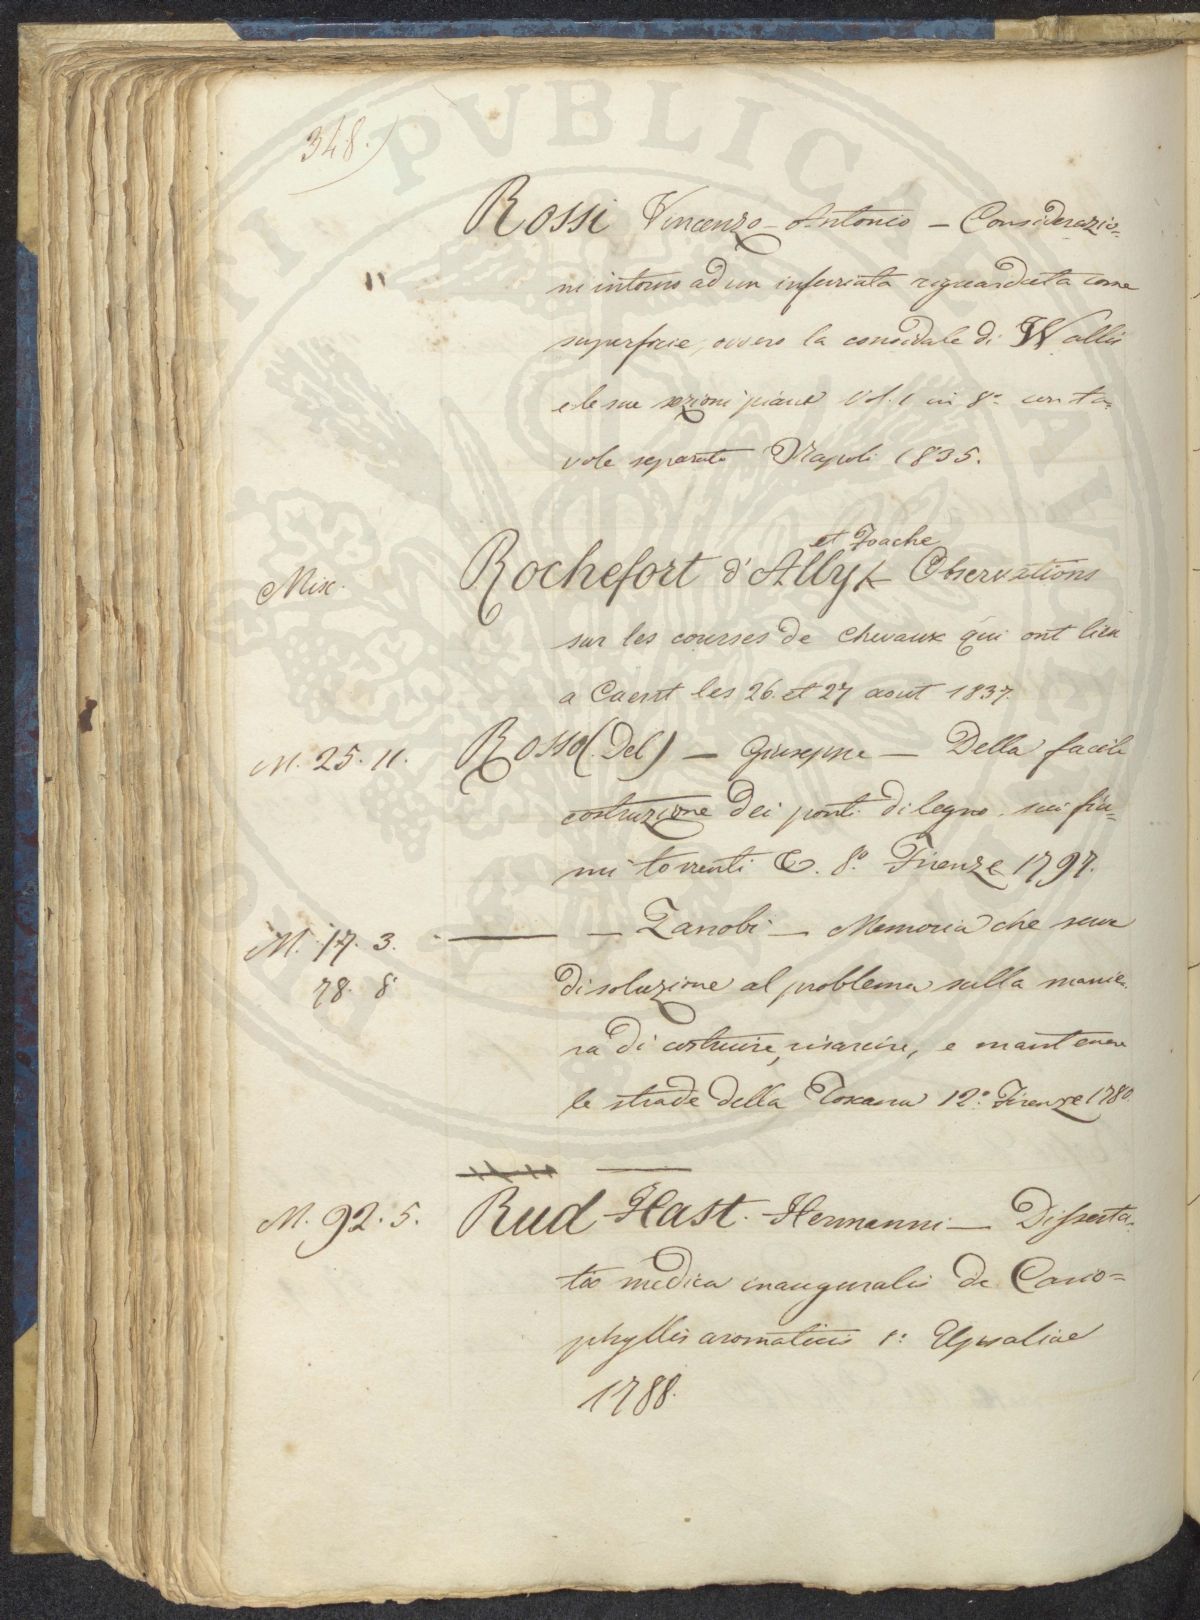 348.
Rossi Vincenzo-Antonio — Considerazio=
" ni intorno ad un inferriata riguardata come
superficie, ovvero la conoidale di Wallis
e le sue sezioni piane Vol. 1 in 8.° con ta=
vole separate Napoli 1835.
et Joache
Misc. Rochefort d'Ally Observations
sur les courses de chevaux qui ont lieu
a Caent les 26 et 27 aout 1837.
M. 25. 11. Rosso (Del) — Giuseppe — Della facile
costruzione dei ponti di legno sui fiu=
mi torrenti &. 8.° Firenze 1797.
M. 17. 3. — Zanobi — Memoria che serve
78. 8 di soluzione al problema sulla manie=
ra di costruire, risarcire, e mantenere
le strade della Toscana 12.° Firenze 1780.
M. 92. 5. Rud Hast. Hermanni — Disserta=
tio medica inauguralis de Cario=
phyllis aromaticis Upsaliae
1788.